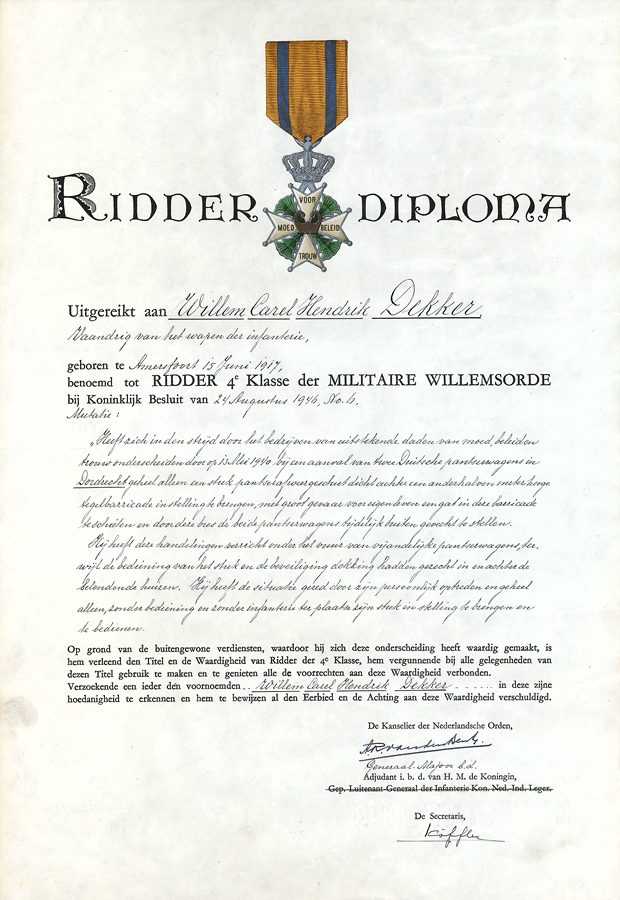 VOOR
MOED BELEID
TROUW
RIDDER DIPLOMA
Uitgereikt aan Willem Carel Hendrik Dekker,
Vaandrig van het wapen der infanterie,
geboren te Amersfoort 15 Juni 1917,
benoemd tot RIDDER 4e Klasse der MILITAIRE WILLEMSORDE
bij Koninklijk Besluit van 24 Augustus 1946, No. 6.
Mutatie:
„Heeft zich in den strijd door het bedrijven van uitstekende daden van moed, beleid en
trouw onderscheiden door op 13 Mei 1940 bij een aanval van twee Duitsche pantserwagens in
Dordrecht geheel alleen een stuk pantserafweergeschut dicht achter een anderhalven meter hooge
tegelbarricade in stelling te brengen, met groot gevaar voor eigen leven een gat in deze barricade
te schieten en door deze bres de beide pantserwagens tijdelijk buiten gevecht te stellen.
Hij heeft deze handelingen verricht onder het vuur van vijandelijke pantserwagens, ter-
wijl de bediening van het stuk en de beveiliging dekking hadden gezocht in en achter de
belendende huizen. Hij heeft de situatie gered door zijn persoonlijk optreden en geheel
alleen, zonder bediening en zonder infanterie ter plaatse zijn stuk in stelling te brengen en
te bedienen.
Op grond van de buitengewone verdiensten, waardoor hij zich deze onderscheiding heeft waardig gemaakt, is
hem verleend den Titel en de Waardigheid van Ridder der 4e Klasse, hem vergunnende bij alle gelegenheden van
dezen Titel gebruik te maken en te genieten alle de voorrechten aan deze Waardigheid verbonden.
Verzoekende een ieder den voornoemden .. Willem Carel Hendrik Dekker - - - - - - in deze zijne
hoedanigheid te erkennen en hem te bewijzen al den Eerbied en de Achting aan deze Waardigheid verschuldigd.
De Kanselier der Nederlandsche Orden,
Generaal-Majoor b.d.
Adjudant i. b. d. van H. M. de Koningin,
Gep. Luitenant-Generaal der Infanterie Kon. Ned. Ind. Leger.
De Secretaris,